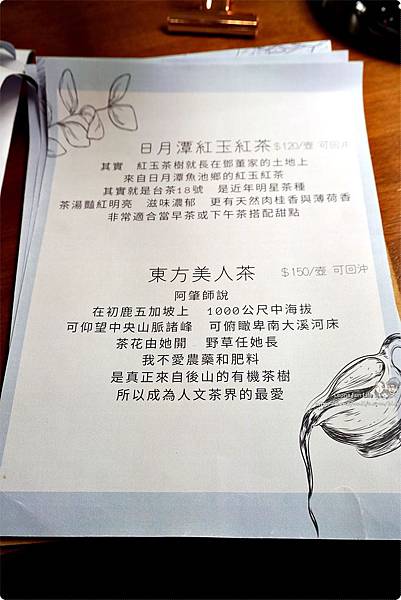 日月潭紅玉紅茶 $120/壺 可回沖
其實 紅玉茶樹就長在鄧董家的土地上
來自日月潭魚池鄉的紅玉紅茶
其實就是台茶18號 是近年明星茶種
茶湯豔紅明亮 滋味濃郁 更有天然肉桂香與薄荷香
非常適合當早茶或下午茶搭配甜點
東方美人茶 $150/壺 可回沖
阿肇師說
在初鹿五加坡上 1000公尺中海拔
可仰望中央山脈諸峰 可俯瞰卑南大溪河床
茶花由她開 野草任她長
我不愛農藥和肥料
是真正來自後山的有機茶樹
所以成為人文茶界的最愛